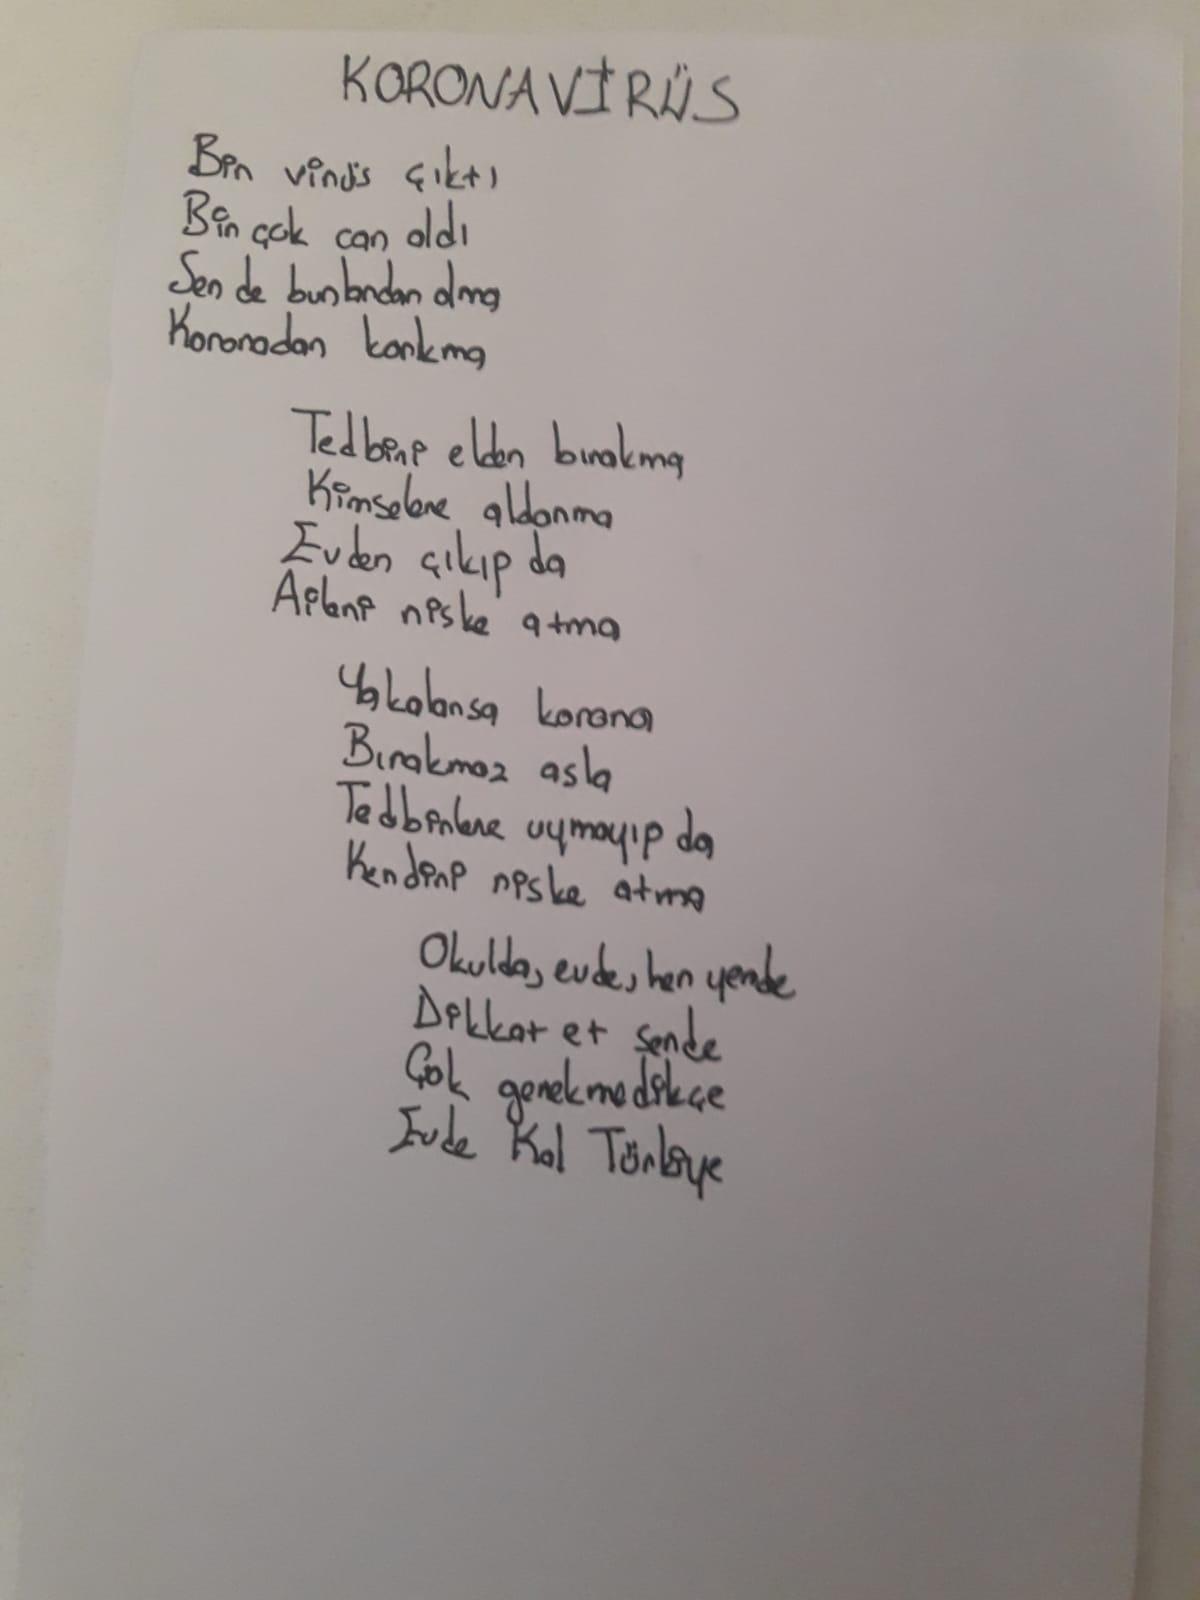 KORONAVİRÜS
Bir virüs çıktı
Bir çok can aldı
Sen de bunlardan olma
Koronadan korkma
Tedbiri elden bırakma
Kimselere aldanma
Evden çıkıp da
Aileni riske atma
Yakalarsa korona
Bırakmaz asla
Tedbirlere uymayıp da
Kendini riske atma
Okulda, evde, her yerde
Dikkat et sende
Çok gerekmedikçe
Evde Kal Türkiye